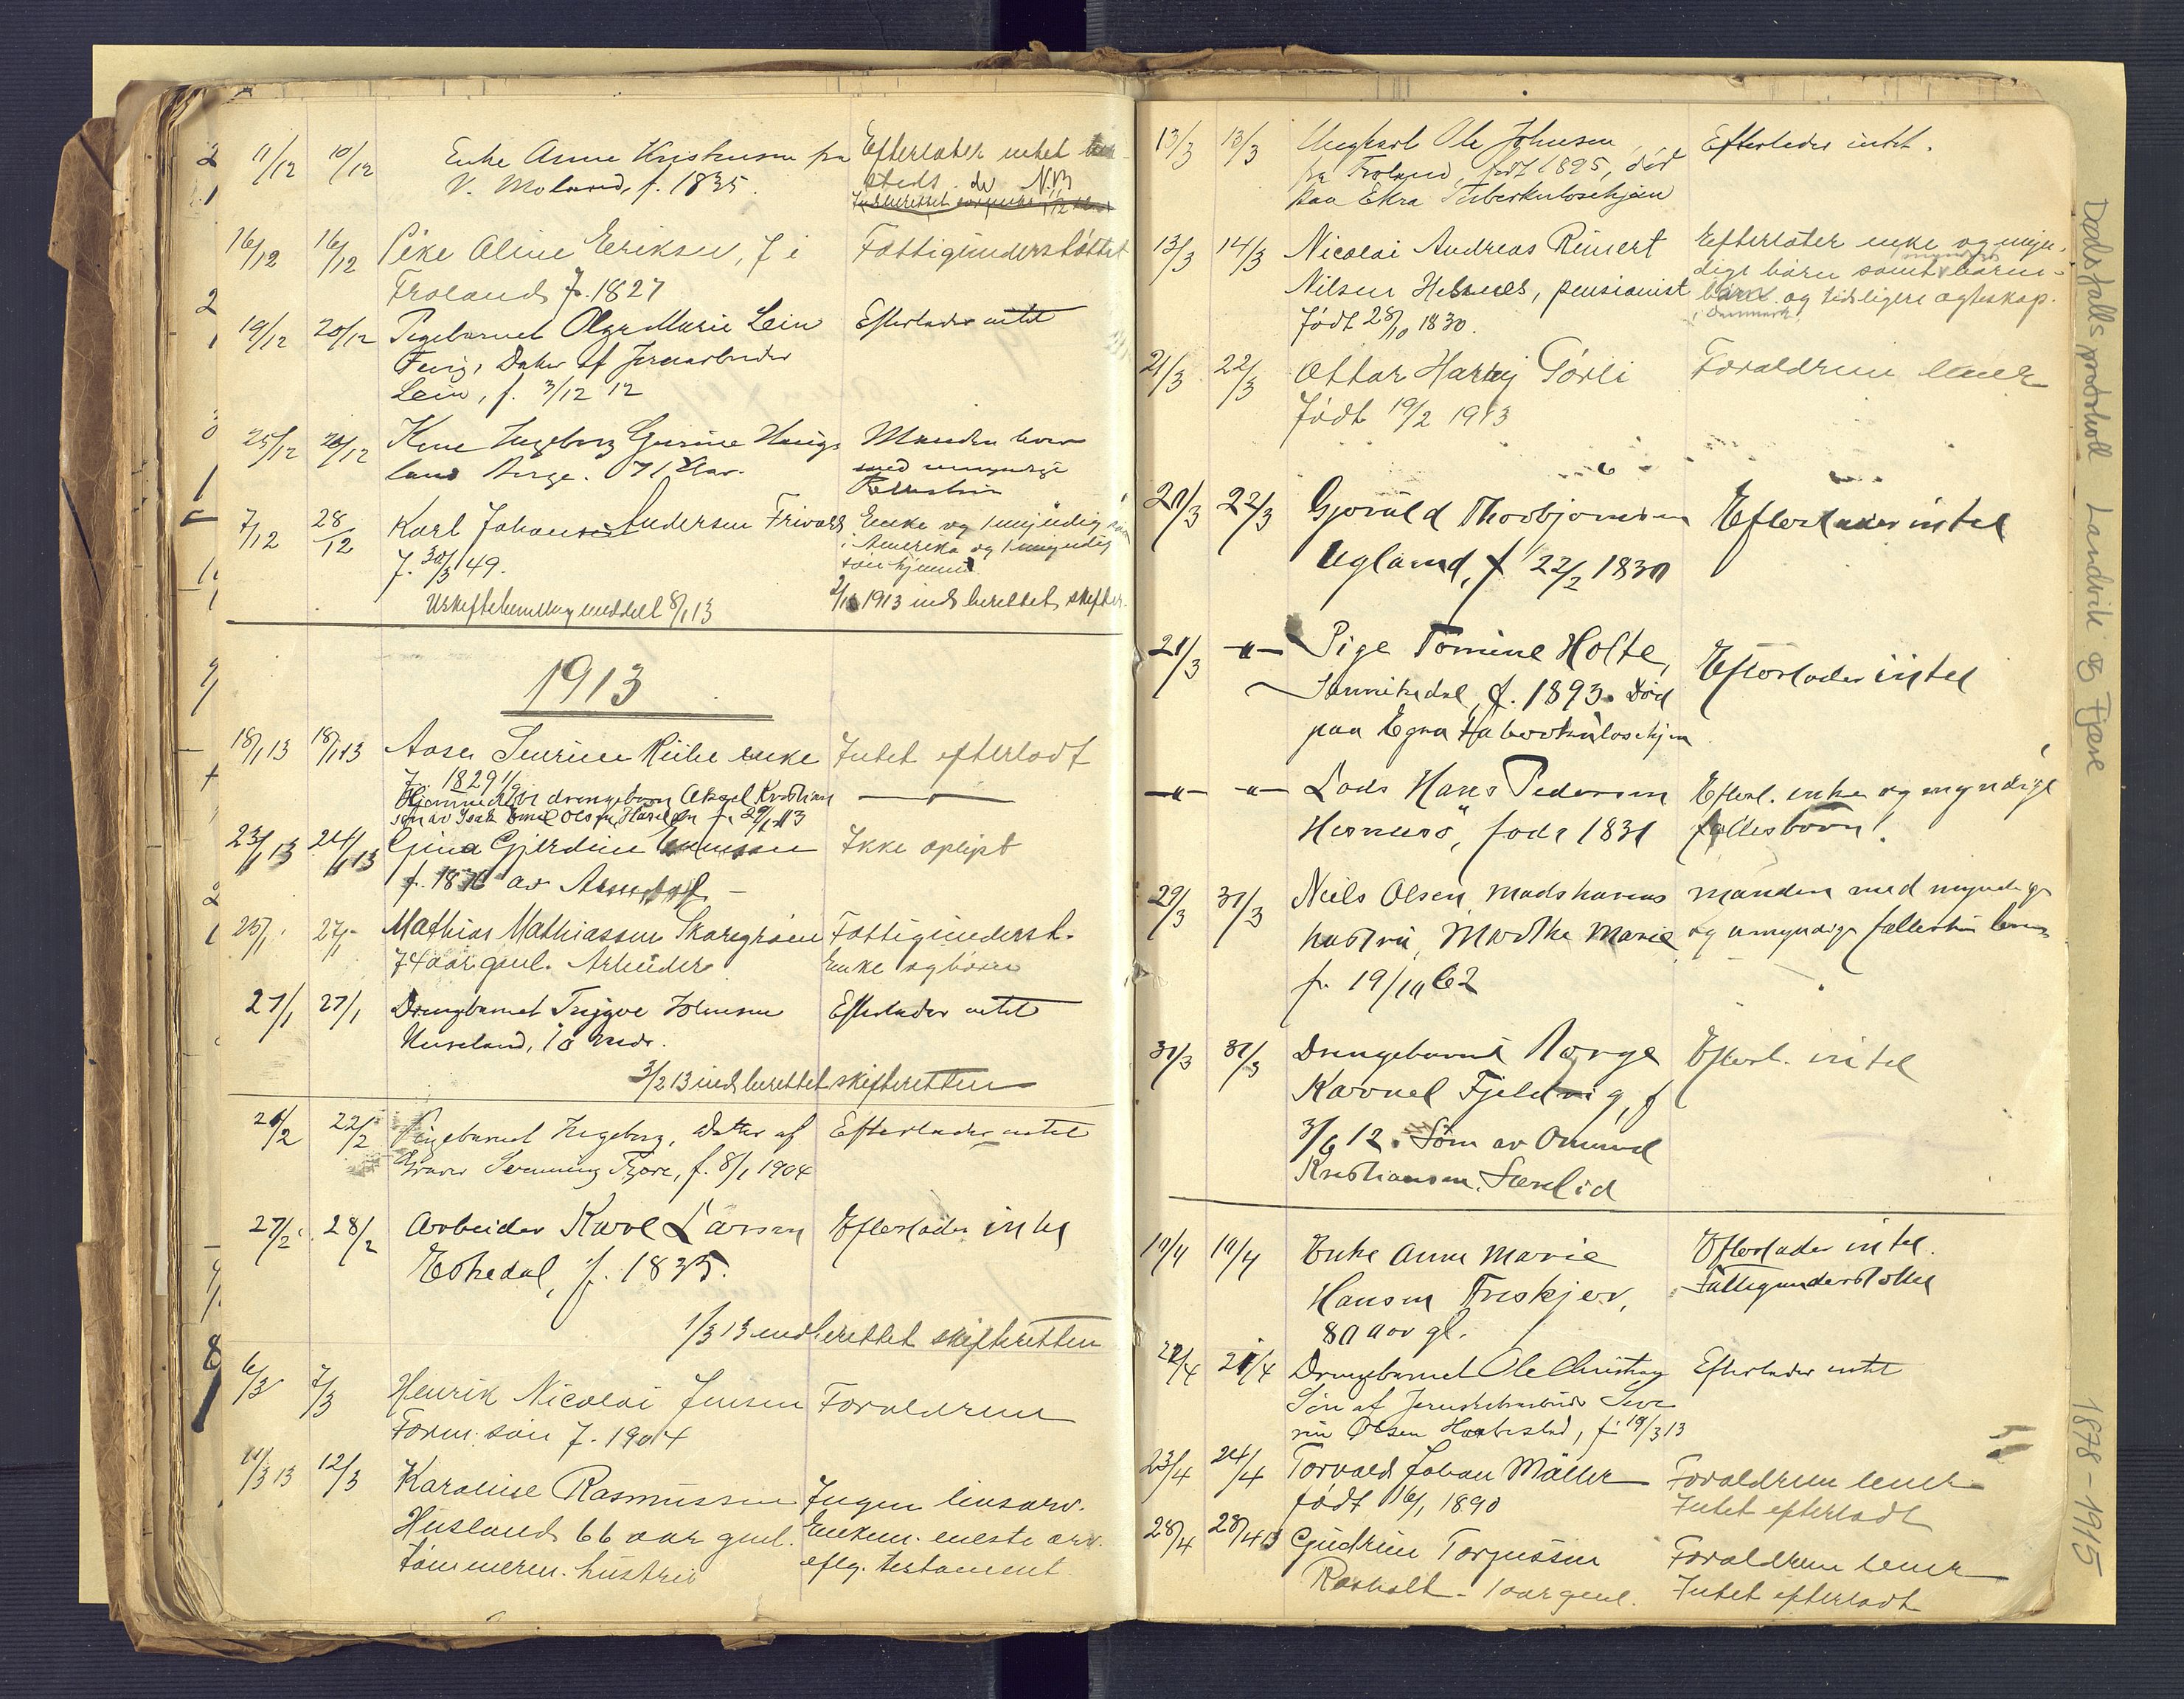 11/12 10/12 Enke Anne Kristensen fra Efterlater intet
V. Moland, f. 1835. steds. de N.M
16/12 16/12 Pike Aline Eriksen, f i Fattigunderstøttet
Froland f. 1827
19/12 20/12 Pigebarnet Olga Marie Lein Efterlader intet
Fevig, Datter af Jernarbeider
Lein, f. 3/12 12
25/12 26/12 Kone Ingeborg Gurine Haugs Manden lever
land Berge. 71 Aar. med umyndige
7/12 28/12 Karl Johan Andersen Frivold Enke og 1 myndig
f. 30/3 49. i Amerika og 1 myndig
søn hjemme
Uskiftebevilling meddelt 8/1 13 2/1 1913 indberettet skifter.
1913
18/1 13 18/1 13 Aase Severine enke Intet efterladt
f. 1829
drengebarn Aksel Kristian
søn av Isak Emil Olsen
23/1 13 24/1 13 Gina Gjerdine Ikke oplyst
f. 18 av
25/1 27/1 Mathias Mathiassen Skaregrøen Fattigunderst.
74 aar gml. Arbeider Enke og børn
27/1 27/1 Drengbarnet Trygve Johnsen Efterlader intet
10 mdr.
3/2 13 indberettet skifteretten
20/2 22/2 Pigebarnet Ingeborg, Datter af Efterlader intet
f. 8/1 1904
27/2 28/2 Arbeider Karl Larsen Efterlader intet
Eskedal, f. 1835.
1/3 13 indberettet skifteretten
6/3 7/3 Henrik Nicolai Jensen Forældrene
søn f. 1904
11/3 13 12/3 Karoline Rasmussen Ingen livsarv.
Husland 66 aar gml. Enkem. eneste arv.
Tømmerm. hustru eflg. testament.
13/3 13/3 Ungkarl Ole Johnsen Efterlader intet.
fra Froland, født 1895, død
paa Ekra Tuberkulosehjem
13/3 14/3 Nicolai Andreas Reinert Efterlater enke og myn-
dige børn samt myndige barne-
Nilsen Hesnes, pensionist barn og tidligere egteskap.
født 28/10 1830. i Danmark
21/3 22/3 Ottar Harry Torli Forældrene lever
født 19/2 1913
21/3 22/3 Gjeruld Thorbjørnsen Efterlader intet
Ugland, f 22/2 1830
21/3 -"- Pige Tomine Holte, Efterlader intet
Sannikedal, f. 1893. Død
paa Egra Tuberkulosehjem
-"- -"- Lods Hans Pedersen Efterl. enke og myndige
Hesnesø, født 1831 fellesbørn.
29/3 31/3 Niels Olsen, Madshavens manden med myndige
hustru, Marthe Marie og umyndige fællesbørn lever
f. 19/10 62
31/3 31/3 Drengebarnet Norge Efterl. intet
Karnel Fjeldvig, f
3/6 12. Søn av Omund
Kristiansen,
10/4 10/4 Enke Anne Marie Efterlader intet.
Hansen Freskjer, Fattigunderstøttet
80 aar gl.
21/4 Drengebarnet Ole Christian Efterlader intet
Søn af Jernskibsarbeider Seve
rin Olsen f. 19/3 13
23/4 24/4 Torvald Johan Møller Forældrene lever
født 16/1 1890 Intet efterladt
28/4 28/4 13 Gudrun Torjussen Forældrene lever
Roshølt - 1 aar gml. Intet efterladt
Dødsfallsprotokoll Landvik og Fjære 1878-1915